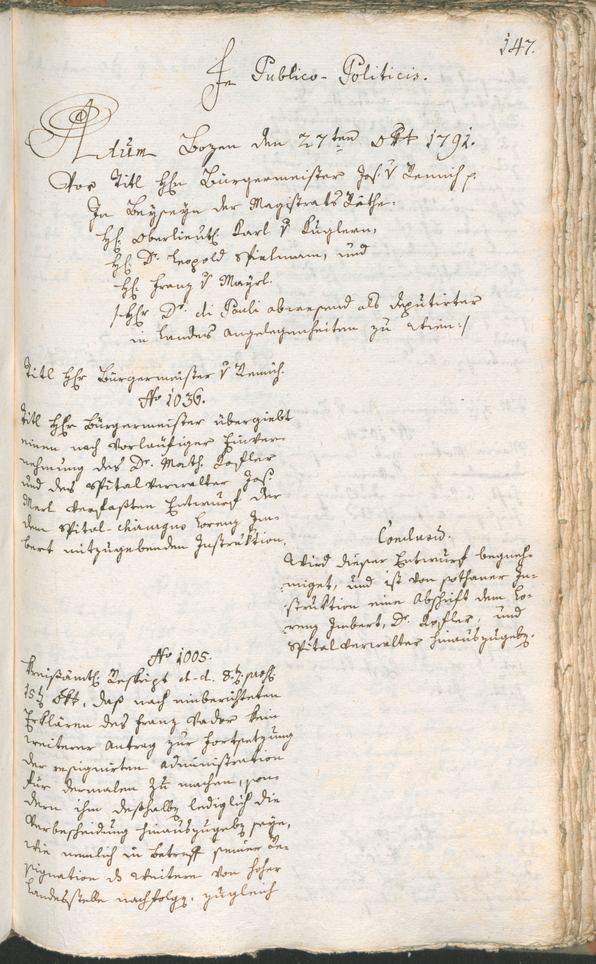 147.
In Publico-Politicis.
Actum Bozen den 27ten Okt 1791.
Vor Titl Hhr Bürgermeister Jos: v Remich
In Beyseyn der Magistrats Räthe,
Hh Oberlieut Karl v Kuglern,
Hh Dr. Leopold Spielmann, und
Hh Franz v Mayrl.
/:Hhr Dr. di Pauli abwesend als deputirter
in Landes angelegenheiten zu Wien:/
Titl Hhr Bürgermeister v Remich.
No 1036.
Titl Hhr Bürgermeister übergiebt
einen nach vorläufiger Einver-
nehmung des Dr. Math.
und des Spitalverwalter Jos:
Merl verfaßten Entwurf der
dem Spital Chyrurgus Lorenz Im-
bert mitzugebenden Instruktion.
Conclusum.
Wird dieser Entwurf begneh-
miget, und ist von sothaner In-
struktion eine Abschrift dem Lo-
renz Imbert, Dr. und
Spitalverwalter hinauszugeben.
No 1005.
Kreisämtl Reskript d.d. 8
15 Okt, daß nach einberichteten
Erklären des Franz Bader kein
weiterer Antrag zur Fortsetzung
der resignirten Administration
für dermalen zu machen, son-
dern ihm deßhalben lediglich die
Verbescheidung hinauszugeben seye,
wie nemlich in Betreff seiner Re-
signation das Weitere von hoher
Landesstelle nachfolge, zugleich